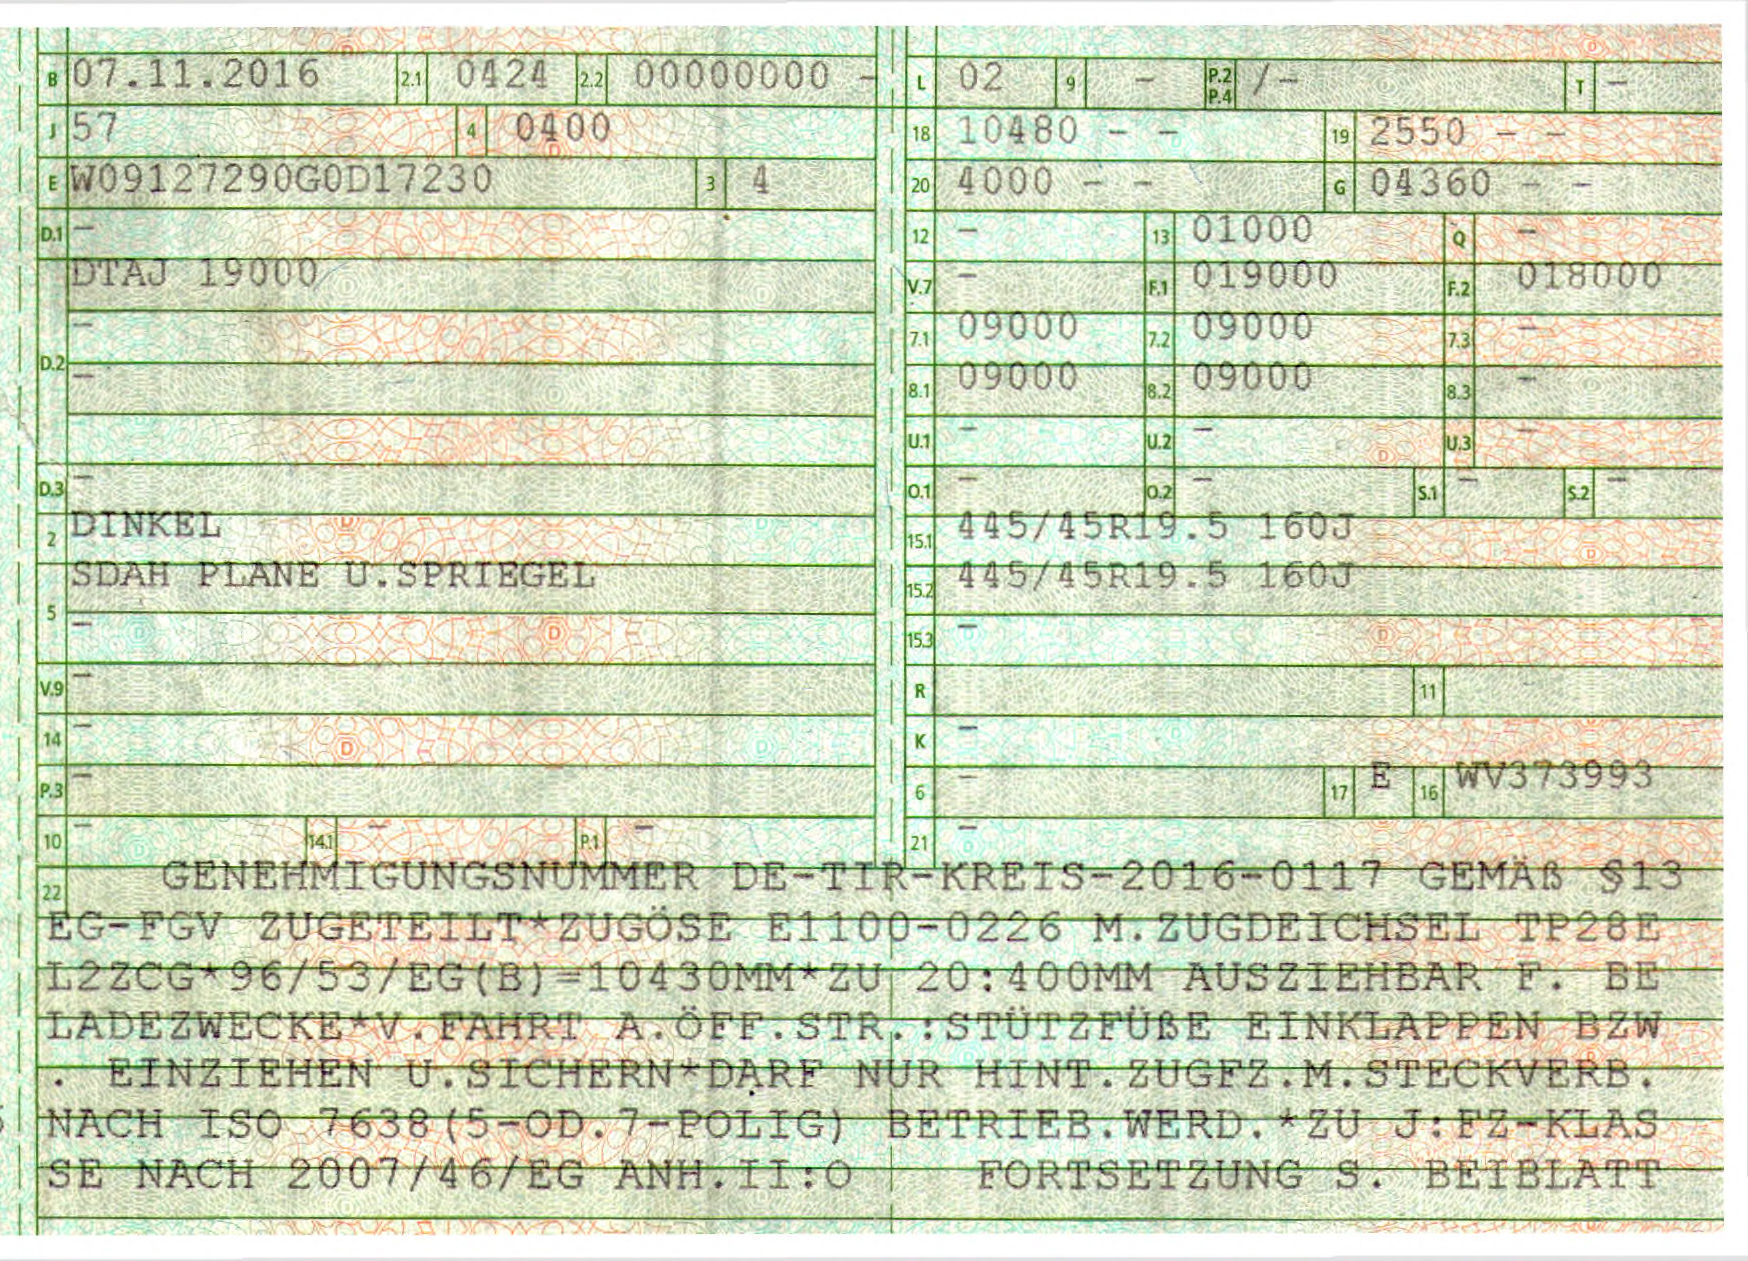 B 07.11.2016 2.1 0424 2.2 00000000 -
J 57 4 0400
E W09127290G0D17230 3 4
D.1 -
DTAJ 19000
D.2 -
-
D.3 -
2 DINKEL
SDAH PLANE U.SPRIEGEL
5 -
V.9 -
14 -
P.3 -
10 - 14.1 - P.1 -
L 02 9 - P.2 P.4 /- T -
18 10480 - - 19 2550 - -
20 4000 - - G 04360 - -
12 - 13 01000 Q -
V.7 - F.1 019000 F.2 018000
7.1 09000 7.2 09000 7.3 -
8.1 09000 8.2 09000 8.3 -
U.1 - U.2 - U.3 -
O.1 - O.2 - S.1 - S.2 -
15.1 445/45R19.5 160J
15.2 445/45R19.5 160J
15.3 -
R 11
K -
6 - 17 E 16 WV373993
21 -
22 GENEHMIGUNGSNUMMER DE-TIR-KREIS-2016-0117 GEMÄß §13
EG-FGV ZUGETEILT*ZUGÖSE E1100-0226 M.ZUGDEICHSEL TP28E
L2ZCG*96/53/EG(B)=10430MM*ZU 20:400MM AUSZIEHBAR F. BE
LADEZWECKE*V.FAHRT A.ÖFF.STR.:STÜTZFÜßE EINKLAPPEN BZW
. EINZIEHEN U.SICHERN*DARF NUR HINT.ZUGFZ.M.STECKVERB.
NACH ISO 7638(5-OD.7-POLIG) BETRIEB.WERD.*ZU J:FZ-KLAS
SE NACH 2007/46/EG ANH.II:O FORTSETZUNG S. BEIBLATT